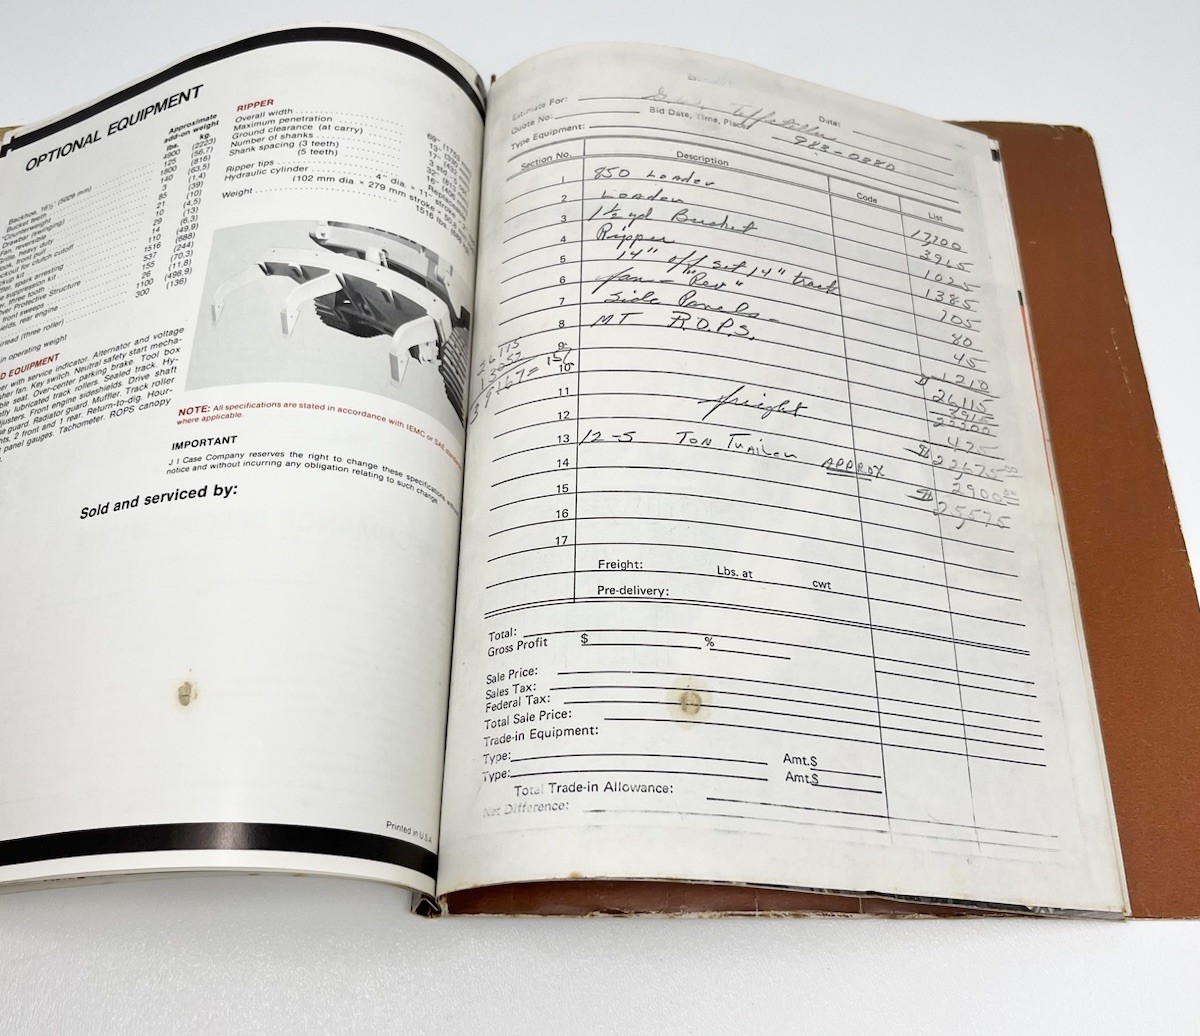 OPTIONAL EQUIPMENT
Approximate
add-on weight
lbs. kg.
Backhoe, 16½' (5029 mm) 4900 (2223)
Bucket teeth 125 (56,7)
Counterweight 1800 (816)
Drawbar (swinging) 140 (63,5)
Fan, reversible 3 (1,4)
heavy duty 85 (39)
front pull 21 (10)
for clutch cutoff 10 (4,5)
29 (13)
spark arresting 14 (6,3)
suppression kit 110 (49,9)
three tooth 1516 (688)
Protective Structure 537 (244)
front sweeps 155 (70,3)
rear engine 26 (11,8)
1100 (498,9)
(three roller) 300 (136)
in operating weight
D EQUIPMENT
with service indicator. Alternator and voltage
fan. Key switch. Neutral safety start mecha-
seat. Over-center parking brake. Tool box
lubricated track rollers. Sealed track. Hy-
adjusters. Front engine sideshields. Drive shaft
guard. Radiator guard. Muffler. Track roller
2 front and 1 rear. Return-to-dig. Hour-
panel gauges. Tachometer. ROPS canopy
RIPPER
Overall width
Maximum penetration
Ground clearance (at carry)
Number of shanks
Shank spacing (3 teeth)
(5 teeth)
Ripper tips
Hydraulic cylinder 4" dia. × 11" stroke
(102 mm dia. × 279 mm stroke
Weight 1516 lbs.
NOTE: All specifications are stated in accordance with IEMC or SAE
where applicable.
IMPORTANT
J I Case Company reserves the right to change these specifications without
notice and without incurring any obligation relating to such change.
Sold and serviced by:
Printed in U.S.A.
Estimate For:
Date:
Quote No: Bid Date, Time, Place
983-0880
Type Equipment:
Section No. Description Code List
1 850 Loader 17200
2 Loader 3915
3 1½ yd Bucket 1025
4 Ripper 1385
5 14" off set 14" track 705
6 fan - "Rev" 80
7 side Panels - 45
8 MT R.O.P.S. 1210
9 $ 26115
26115
10 3915
22200
11 freight 475
12 $ 22675.00
13 12-5 Ton Trailer APPROX 2900.00
14 $ 25,575
15
16
17
Freight: Lbs. at cwt
Pre-delivery:
Total:
Gross Profit $ %
Sale Price:
Sales Tax:
Federal Tax:
Total Sale Price:
Trade-in Equipment:
Type: Amt.$
Type: Amt.$
Total Trade-in Allowance:
Net Difference: